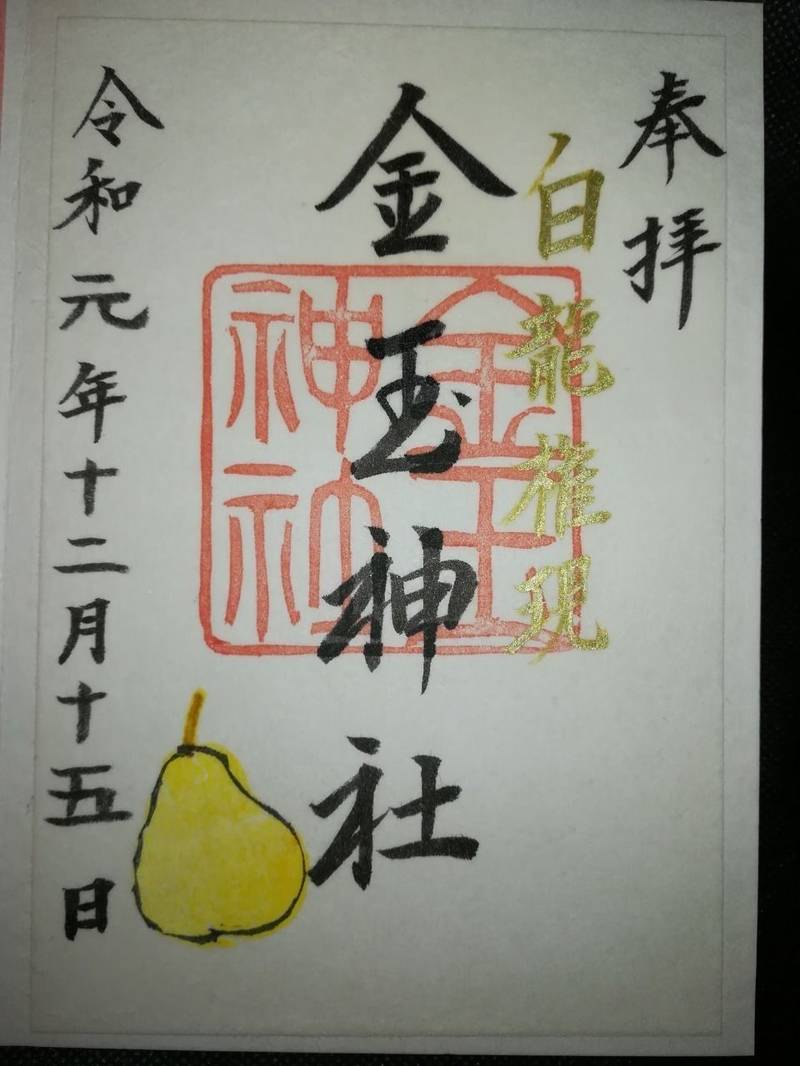 奉拝
白龍権現
金玉神社
金玉神社
令和元年十二月十五日